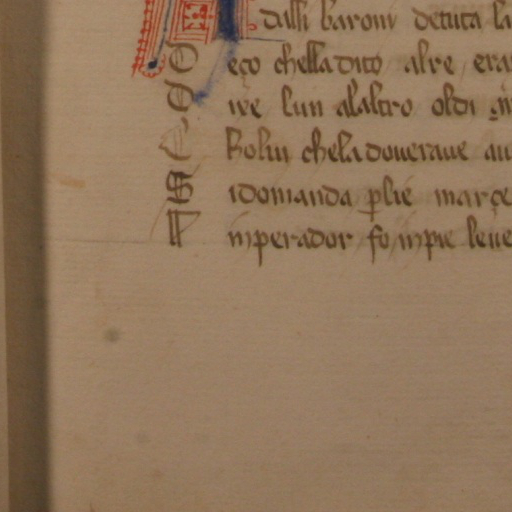 dalli baroni detuta la
D eço chella dito alre era
D ire lun alaltro oldi
C Rolin chela doverave au
S idomanda plie março
L inperador fo inpie leve